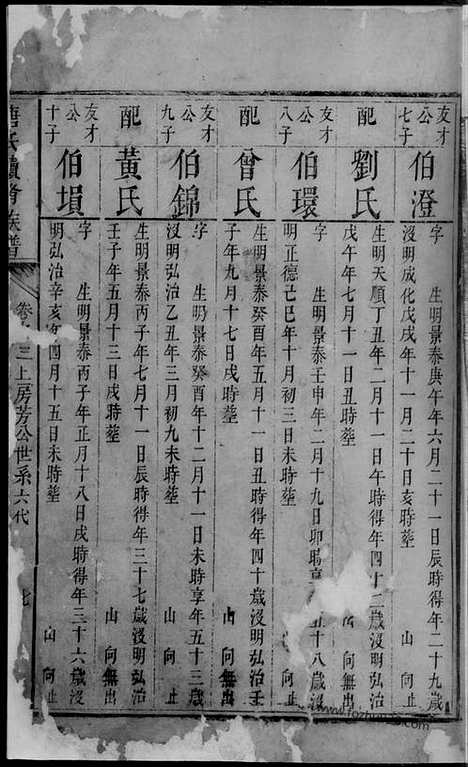 友才
公
七子
伯澄
字 生明景泰庚午年六月二十一日辰時得年二十九歲
沒明成化戊戌年十一月二十日亥時塟 山 向止
配
劉氏
生明天順丁丑年二月十一日午時得年四十二歲沒明
戊午年七月十一日丑時塟 山 向無出
友才
公
八子
伯環
字 生明景泰壬申年二月十九日卯時享 五十八歲沒
明正德己巳年十月初三日未時塟 山 向止
配
曾氏
生明景泰癸酉年五月十一日丑時得年四十歲沒明弘治壬
子年九月十七日戌時塟 山 向無出
友才
公
九子
伯錦
字 生明景泰癸酉年十二月十一日未時享年五十三歲
沒明弘治乙丑年三月初九未時塟 山 向止
配
黃氏
生明景泰丙子年七月十一日辰時得年三十七歲沒明弘治
壬子年五月十三日戌時塟 山 向無出
友才
公
十子
伯塤
字 生明景泰丙子年正月十八日戌時得年三十六歲沒
明弘治辛亥年四月十五日未時塟 山 向止
氏續脩族譜
卷 三上房芳公世系六代
七